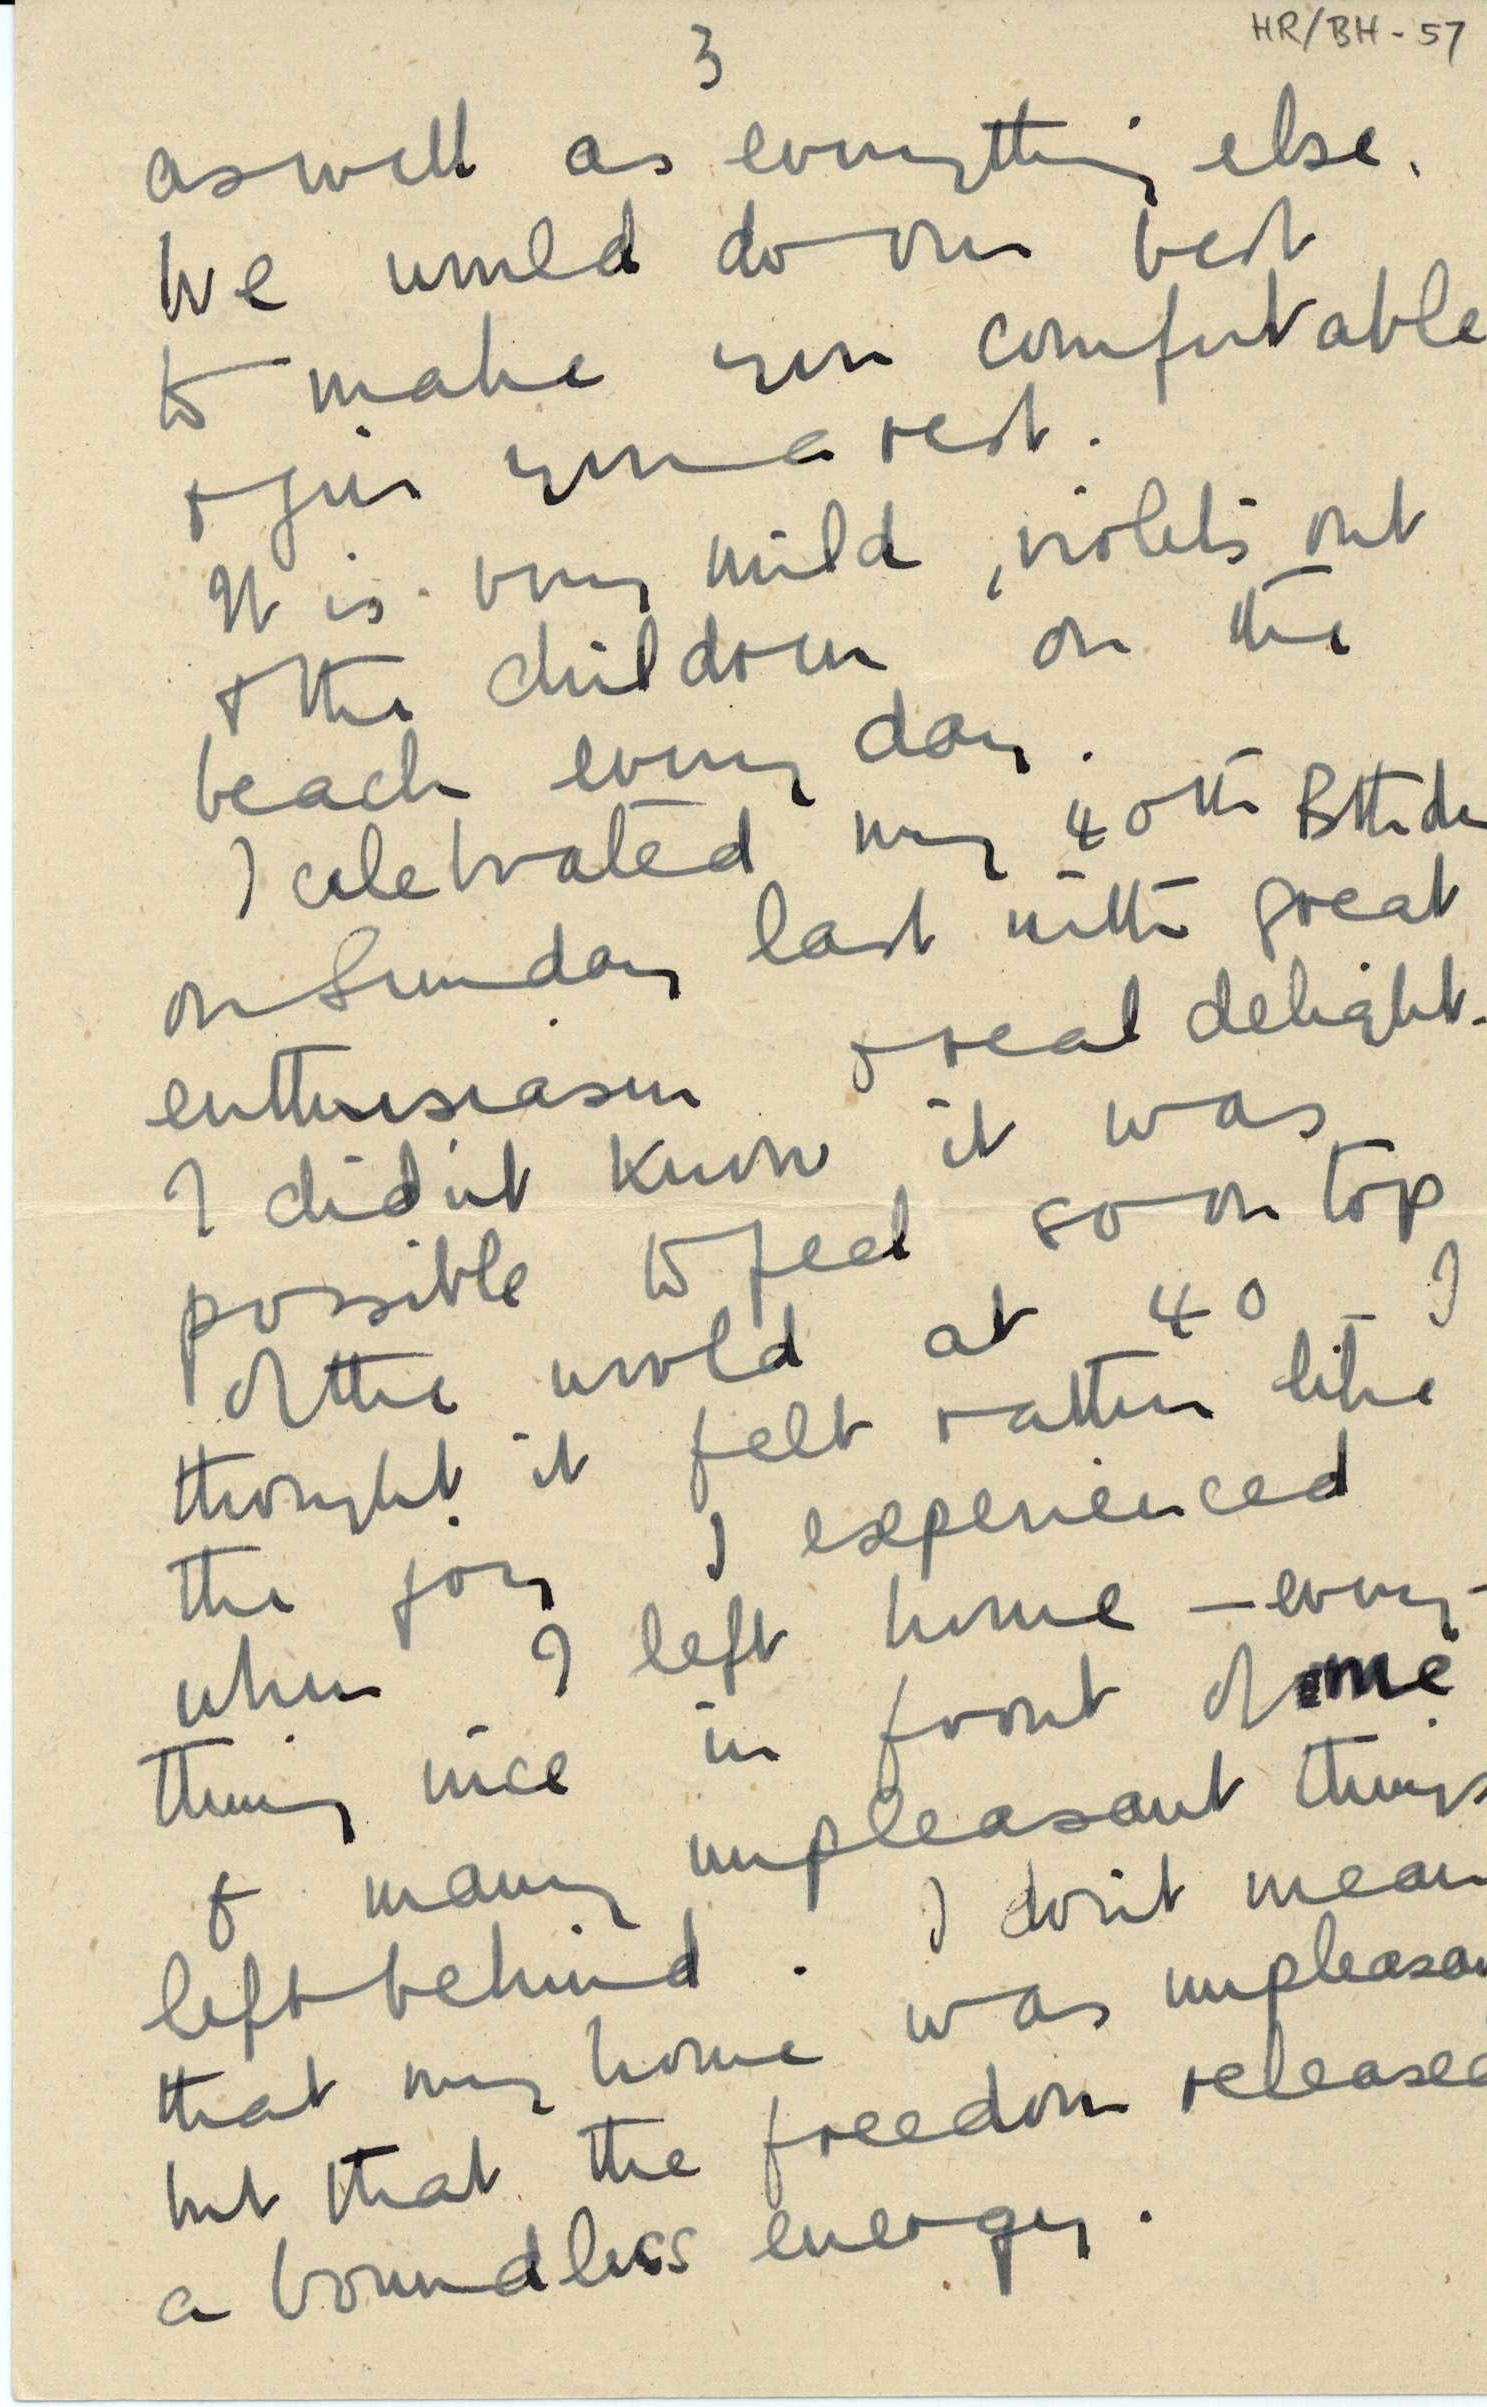 3
HR/BH - 57
as well as everything else.
We would do our best
to make you comfortable
+ give you a rest.
It is very mild, violets out
+ the children on the
beach every day.
I celebrated my 40th Bthda
on Sunday last with great
enthusiasm + real delight.
I didn't know it was
possible to feel so on top
of the world at 40 - I
thought it felt rather like
the joy I experienced
when I left home - every-
thing nice in front of me
& many unpleasant things
left behind. I don't mean
that my home was unpleasan
but that the freedom released
a boundless energy.